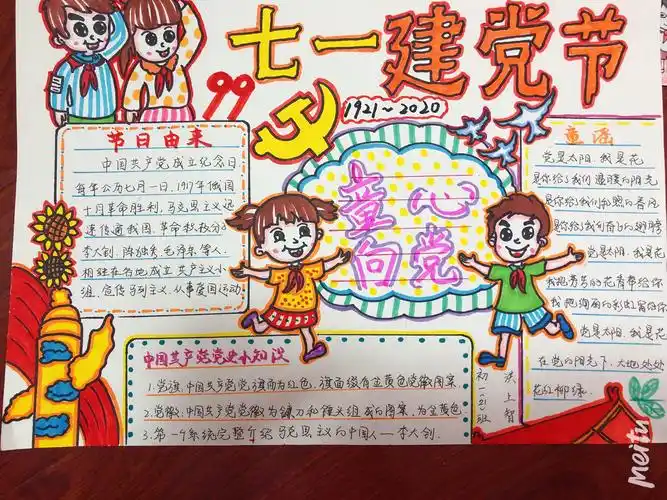 七一建党节
99
1921~2020
节日由来
中国共产党成立纪念日
每年公历七月一日，1917年俄国
十月革命胜利，马克思主义迅
速传遍我国，革命积极分子
李大钊、陈独秀、毛泽东等人，
相继在各地成立共产主义小
组，宣传马列主义，从事爱国运动
童心
向党
童谣
党是太阳，我是花
是你给了我们温暖的阳光
是你给了我们和煦的春风
是你给了我们奋飞的翅膀
党是太阳，我是花
我把芳芳的花青带给你
我把绚丽的彩虹留给你
党是太阳，我是花
在党的阳光下，大地处处
花红柳绿．
中国共产党党史小知识
1.党旗：中国共产党党旗面为红色，旗面缀有金黄色党徽图案
2.党徽：中国共产党党徽为镰刀和锤头组成的图案，为金黄色
3.第一个系统完整介绍马克思主义的中国人——李大钊．
班
洪上智
Meitu